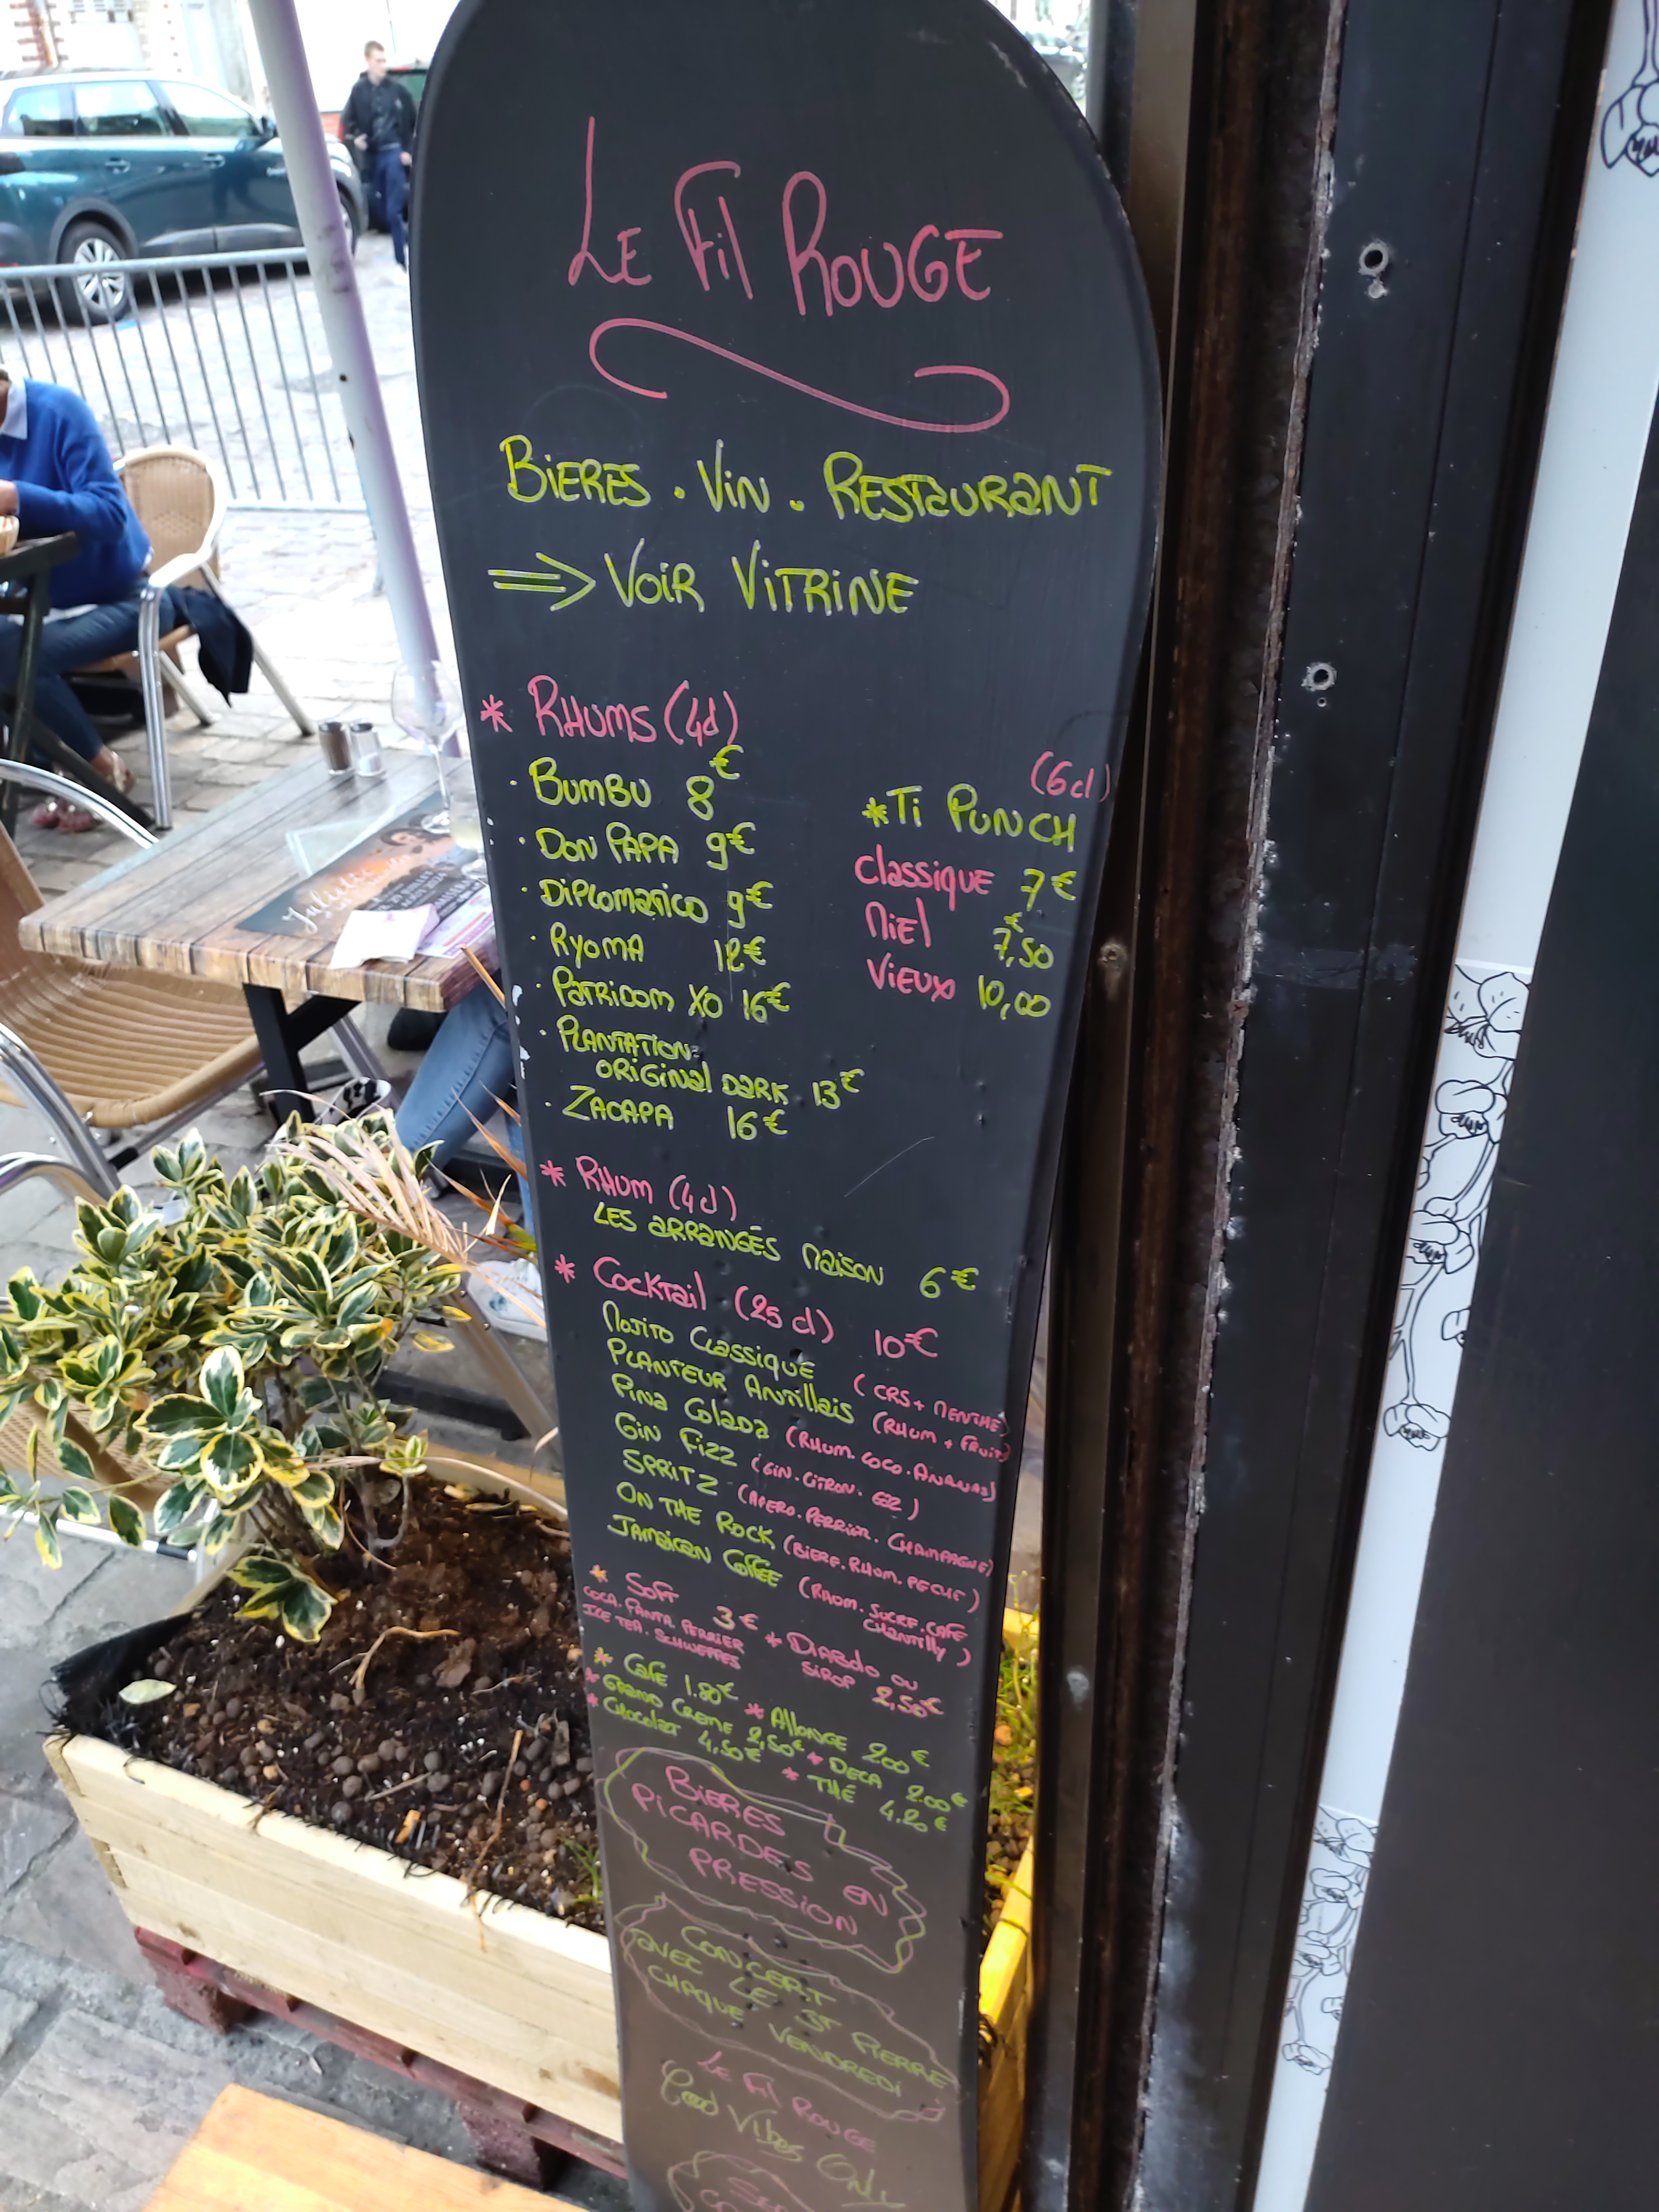 LE Fil ROUGE
BIERES . VIN . RESTAURANT
⇒ VOIR VITRINE
* RHUMS (4cl)
· BUMBU 8€
· DON PAPA 9€
· DIPLOMATICO 9€
· RYOMA 12€
· PATRIDOM XO 16€
· PLANTATION
ORIGINAL DARK 13€
· ZACAPA 16€
(6cl)
* TI PUNCH
Classique 7€
MIEL 7,50€
VIEUX 10,00
* RHUM (4cl)
LES ARRANGÉS MAISON 6€
* COCKTAIL (25 cl) 10€
MOJITO CLASSIQUE (CRS + MENTHE)
PLANTEUR ANTILLAIS (RHUM + FRUITS)
PINA COLADA (RHUM. COCO. ANANAS)
GIN FIZZ (GIN. CITRON. GAZ)
SPRITZ (APERO. PERRIER. CHAMPAGNE)
ON THE ROCK (BIERE. RHUM. PECHE)
JAMAICAN COFFEE (RHUM. SUCRE. CAFE
CHANTILLY)
* SOFT 3€
COCA. FANTA. PERRIER
ICE TEA. SCHWEPPES
* DIABOLO OU
SIROP 2,50€
* CAFE 1.80€ * ALLONGE 2.00€
* GRAND CREME 2,50€ * DECA 2.00€
* CHOCOLAT 4,50€ * THÉ 4.20€
BIERES
PICARDES EN
PRESSION
CONCERT
AVEC LE ST PIERRE
CHAQUE VENDREDI
LE Fil ROUGE
Good Vibes Only